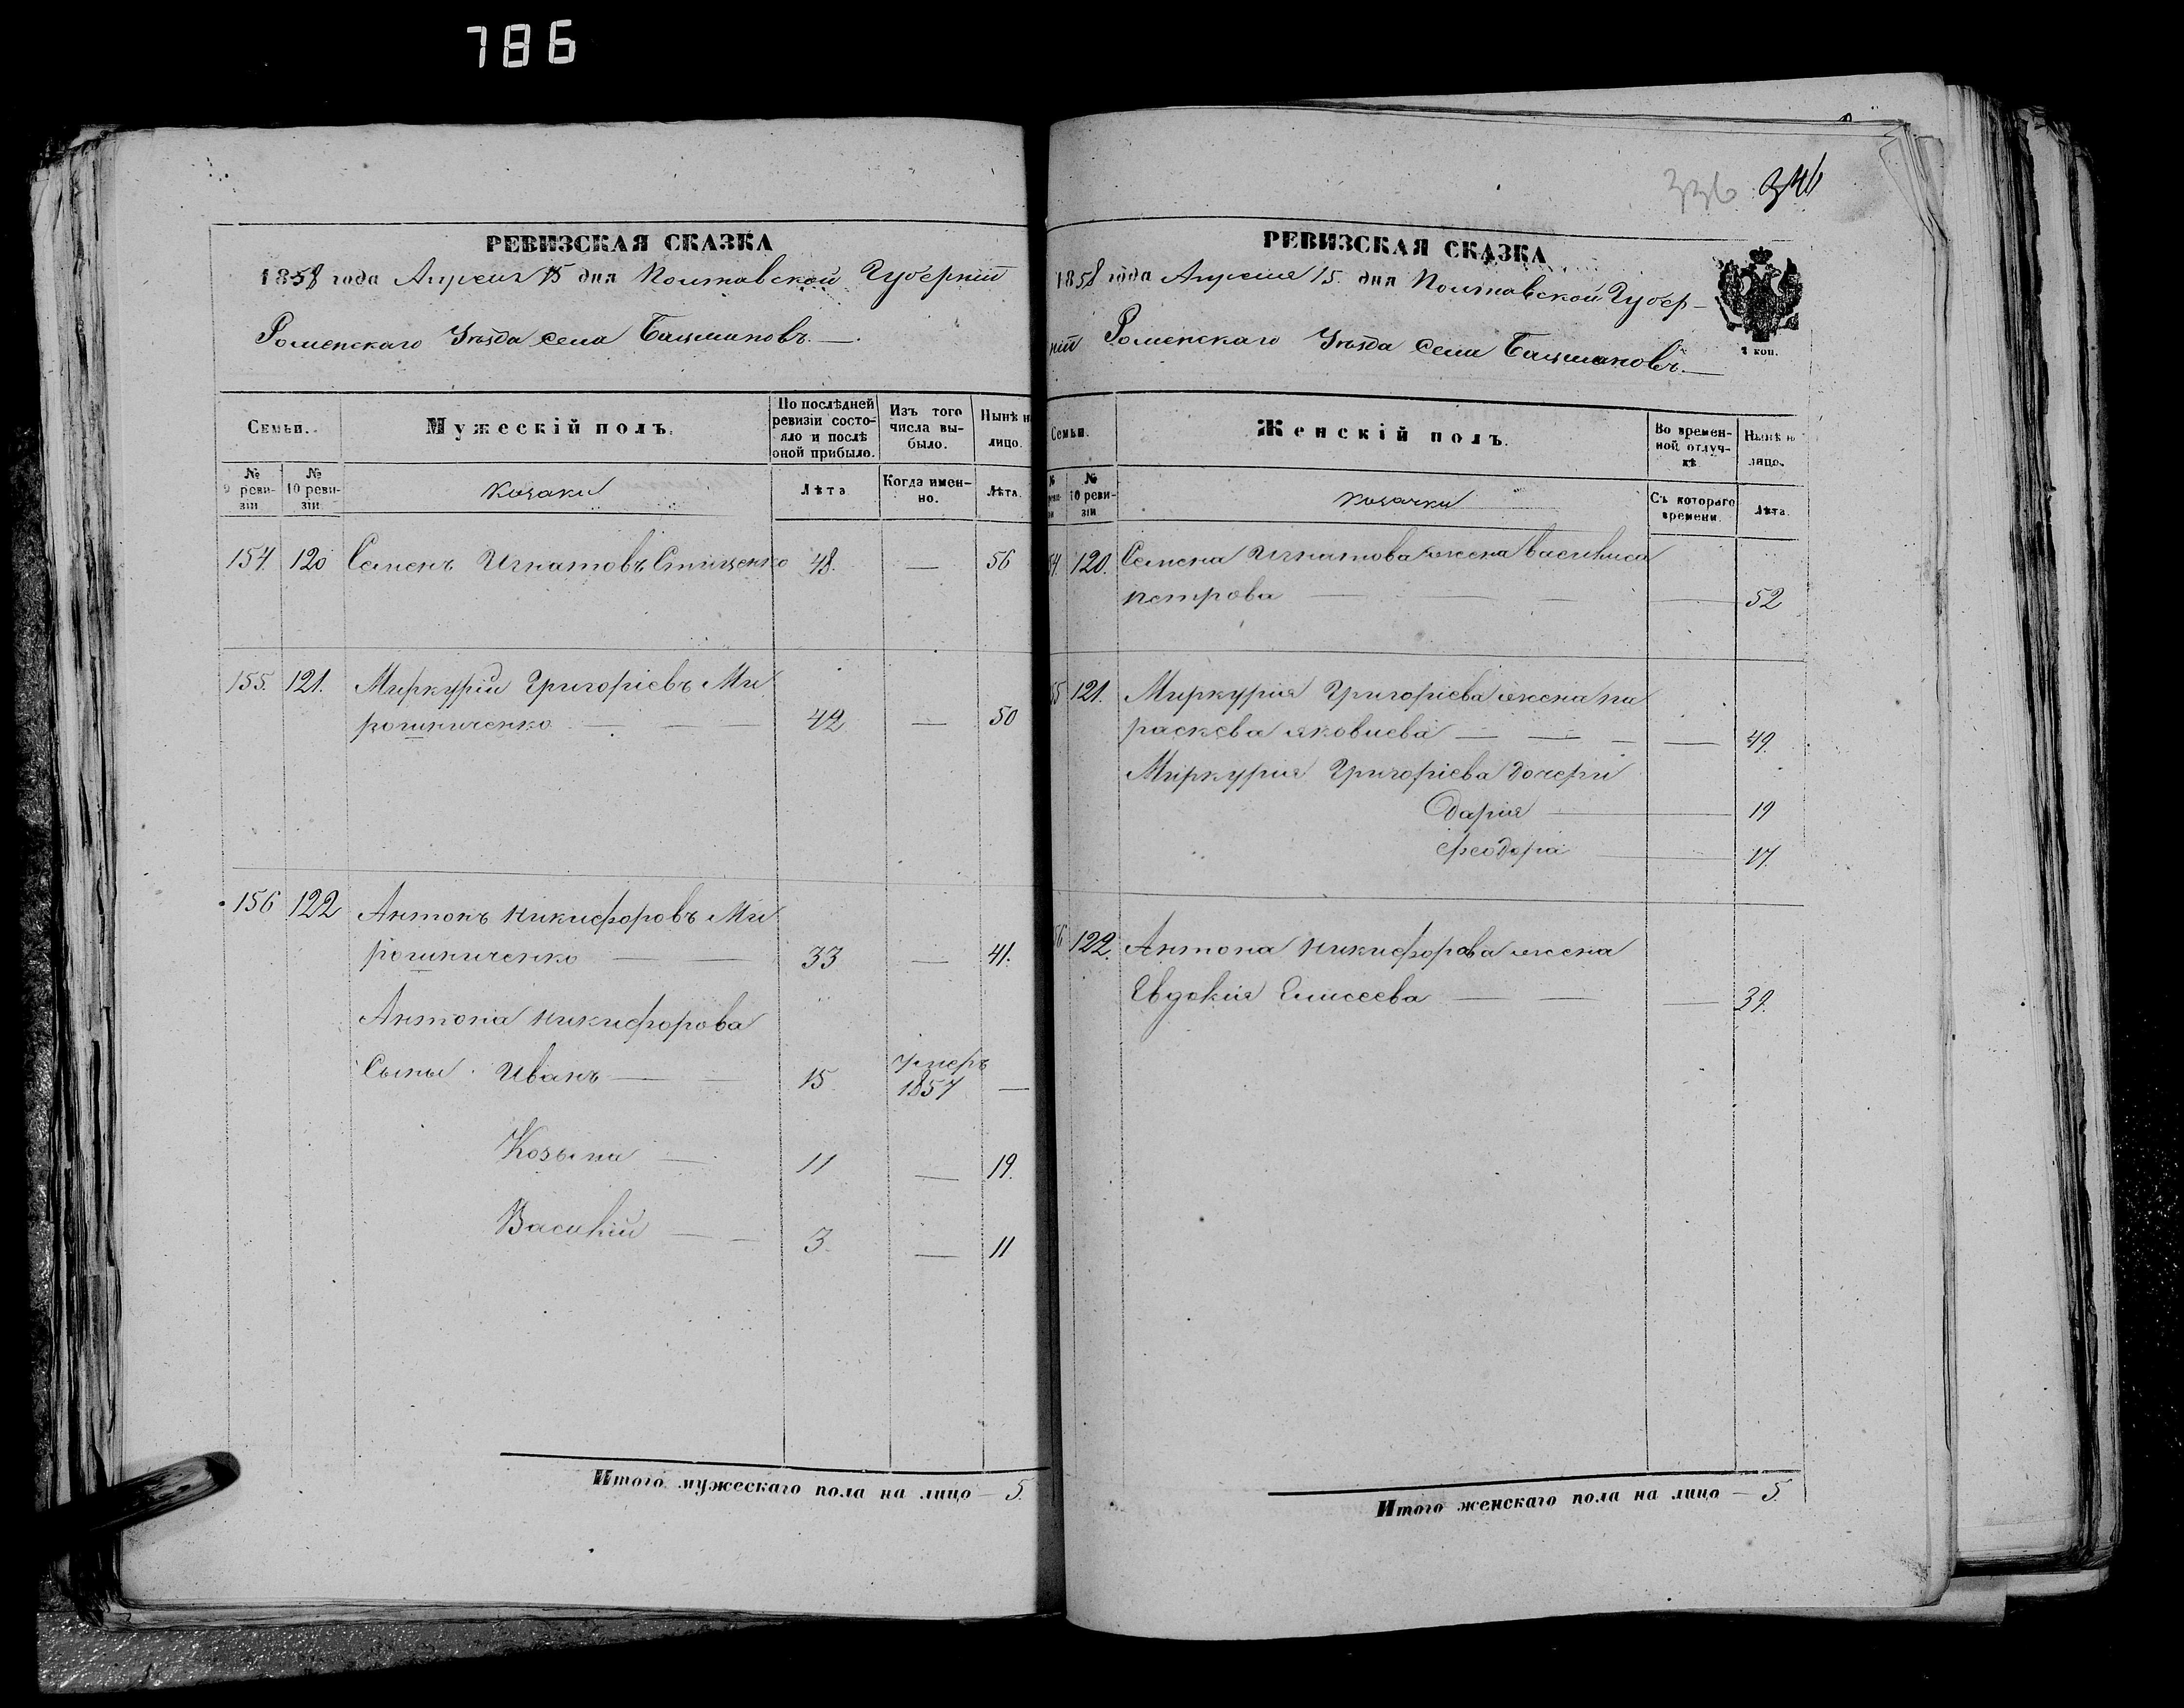 786
РЕВИЗСКАЯ СКАЗКА
1858 года Апреля 15 дня Полтавской Губерніи
Роменскаго Уѣзда села Бацмановъ.
Семьи.
Мужескій полъ.
По послѣдней ревизіи состояло и послѣ оной прибыло.
Изъ того числа выбыло.
Нынѣ н
лицо.
№ 9 ревизіи
№ 10 ревизіи
Козаки
Лѣта
Когда именно.
Лѣта.
154. 120 Семенъ Игнатовъ 48. — 56
155. 121. Миркурій Григоріевъ Ми
рошниченко — — — 42 — 50
156 122 Антонъ Никифоровъ Ми
рошниченко — — 33 — 41.
Антона Никифорова
Сыны Иванъ — — 15 умеръ 1857 —
Козьма — 11 — 19.
Василій — — 3. — 11
Итого мужескаго пола на лицо — 5.
336 346
РЕВИЗСКАЯ СКАЗКА
1858 года Апреля 15. дня Полтавской Губер-
ніи Роменскаго Уѣзда села Бацмановъ.
1 коп.
Семьи.
Женскій полъ.
Во временной отлучкѣ
Нынѣ н
лицо.
№ 10 ревизіи
Козачки
Съ котораго времени.
Лѣта.
54. 120. Семена Игнатова жена Василиса
Петрова — — — — 52
55 121. Миркурія Григоріева жена Па
раскева Яковлева — — — — 49.
Миркурія Григоріева дочери
Дарія — — 19
Феодора — 17.
56 122. Антона Никифорова жена
Евдокія Елисеева — — — 39.
Итого женскаго пола на лицо — 5.